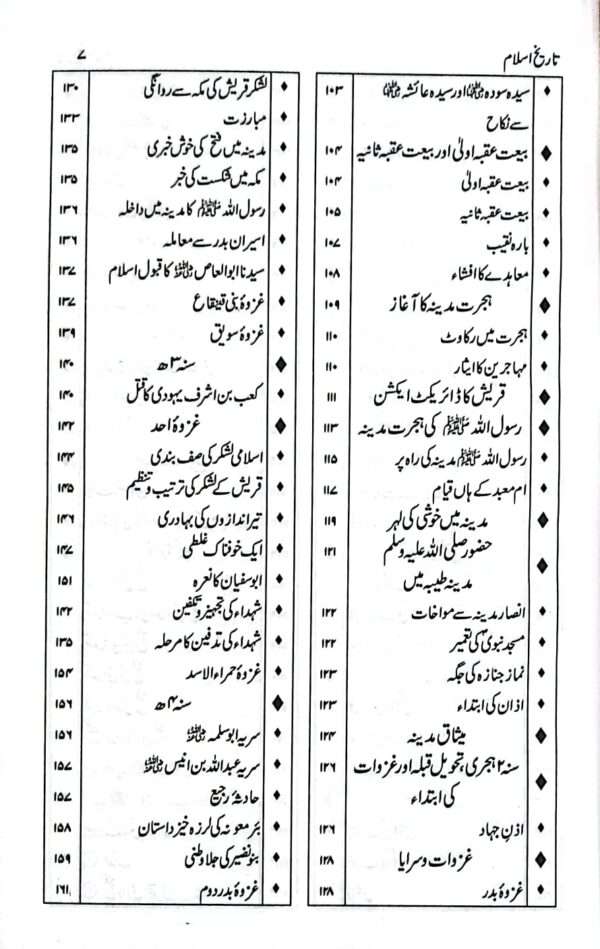 تاریخ اسلام ۷
♦ سیدہ سودہ ؓ اور سیدہ عائشہ ؓ ۱۰۳
سے نکاح
◆ بیعت عقبہ اولیٰ اور بیعت عقبہ ثانیہ ۱۰۴
♦ بیعت عقبہ اولیٰ ۱۰۴
♦ بیعت عقبہ ثانیہ ۱۰۵
♦ بارہ نقیب ۱۰۷
♦ معاہدے کا افشاء ۱۰۸
◆ ہجرت مدینہ کا آغاز ۱۰۹
♦ ہجرت میں رکاوٹ ۱۱۰
♦ مہاجرین کا ایثار ۱۱۰
◆ قریش کا ڈائریکٹ ایکشن ۱۱۱
◆ رسول اللہ ﷺ کی ہجرت مدینہ ۱۱۳
♦ رسول اللہ ﷺ مدینہ کی راہ پر ۱۱۵
♦ ام معبد کے ہاں قیام ۱۱۷
◆ مدینہ میں خوشی کی لہر ۱۱۹
◆ حضور صلی اللہ علیہ وسلم ۱۲۱
مدینہ طیبہ میں
♦ انصار مدینہ سے مواخات ۱۲۲
♦ مسجد نبویؐ کی تعمیر ۱۲۲
♦ نماز جنازہ کی جگہ ۱۲۳
♦ اذان کی ابتداء ۱۲۳
◆ میثاق مدینہ ۱۲۴
◆ سنہ ۲ ہجری، تحویل قبلہ اور غزوات ۱۲۶
کی ابتداء
♦ اذنِ جہاد ۱۲۶
◆ غزوات و سرایا ۱۲۸
♦ غزوۂ بدر ۱۲۸
♦ لشکر قریش کی مکہ سے روانگی ۱۳۰
♦ مبارزت ۱۳۳
♦ مدینہ میں فتح کی خوش خبری ۱۳۵
♦ مکہ میں شکست کی خبر ۱۳۵
♦ رسول اللہ ﷺ کا مدینہ میں داخلہ ۱۳۶
♦ اسیران بدر سے معاملہ ۱۳۶
♦ سیدنا ابوالعاص ؓ کا قبول اسلام ۱۳۷
♦ غزوۂ بنی قینقاع ۱۳۷
♦ غزوۂ سویق ۱۳۹
◆ سنہ ۳ھ ۱۴۰
♦ کعب بن اشرف یہودی کا قتل ۱۴۰
◆ غزوۂ احد ۱۴۲
♦ اسلامی لشکر کی صف بندی ۱۴۴
♦ قریش کے لشکر کی ترتیب و تنظیم ۱۴۵
♦ تیراندازوں کی بہادری ۱۴۶
♦ ایک خوفناک غلطی ۱۴۷
♦ ابوسفیان کا نعرہ ۱۵۱
♦ شہداء کی تجہیز و تکفین ۱۴۲
♦ شہداء کی تدفین کا مرحلہ ۱۳۵
♦ غزوۂ حمراء الاسد ۱۵۴
◆ سنہ ۴ھ ۱۵۶
♦ سریہ ابوسلمہ ؓ ۱۵۶
♦ سریہ عبداللہ بن انیس ؓ ۱۵۷
♦ حادثۂ رجیع ۱۵۷
♦ بئر معونہ کی لرزہ خیز داستان ۱۵۸
♦ بنونضیر کی جلاوطنی ۱۵۹
♦ غزوۂ بدر دوم ۱۶۱